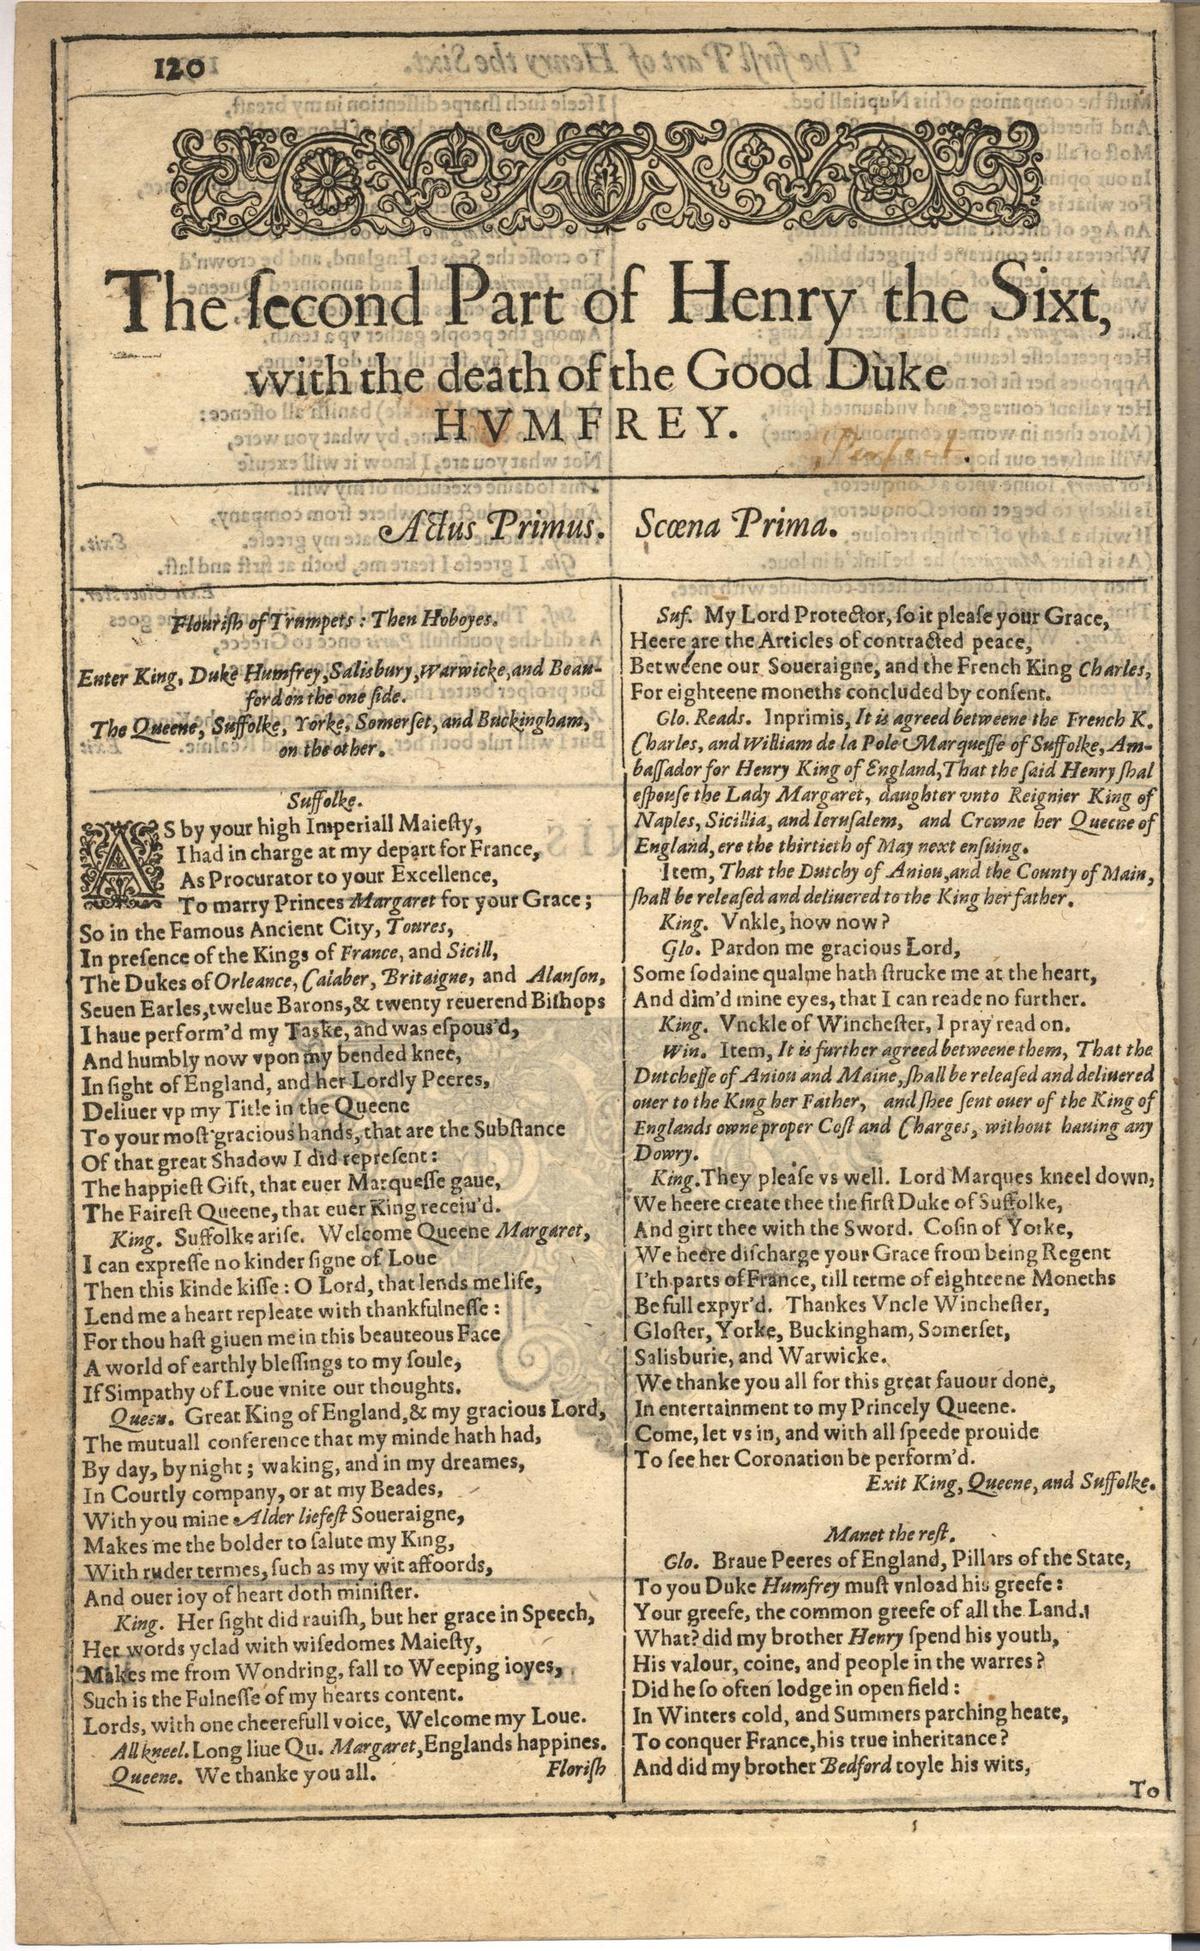 120
The ſecond Part of Henry the Sixt,
with the death of the Good Duke
HVMFREY.
Actus Primus. Scœna Prima.
Flouriſh of Trumpets : Then Hoboyes.
Enter King, Duke Humfrey, Salisbury, Warwicke, and Beau-
ford on the one ſide.
The Queene, Suffolke, Yorke, Somerſet, and Buckingham,
on the other.
Suffolke.
AS by your high Imperiall Maieſty,
I had in charge at my depart for France,
As Procurator to your Excellence,
To marry Princes Margaret for your Grace;
So in the Famous Ancient City, Toures,
In preſence of the Kings of France, and Sicill,
The Dukes of Orleance, Calaber, Britaigne, and Alanſon,
Seuen Earles, twelue Barons, & twenty reuerend Biſhops
I haue perform'd my Taske, and was eſpous'd,
And humbly now vpon my bended knee,
In ſight of England, and her Lordly Peeres,
Deliuer vp my Title in the Queene
To your moſt gracious hands, that are the Subſtance
Of that great Shadow I did repreſent:
The happieſt Gift, that euer Marqueſſe gaue,
The Faireſt Queene, that euer King receiu'd.
King. Suffolke ariſe. Welcome Queene Margaret,
I can expreſſe no kinder ſigne of Loue
Then this kinde kiſſe: O Lord, that lends me life,
Lend me a heart repleate with thankfulneſſe:
For thou haſt giuen me in this beauteous Face
A world of earthly bleſſings to my ſoule,
If Simpathy of Loue vnite our thoughts.
Queen. Great King of England, & my gracious Lord,
The mutuall conference that my minde hath had,
By day, by night; waking, and in my dreames,
In Courtly company, or at my Beades,
With you mine Alder liefeſt Soueraigne,
Makes me the bolder to ſalute my King,
With ruder termes, ſuch as my wit affoords,
And ouer ioy of heart doth miniſter.
King. Her ſight did rauiſh, but her grace in Speech,
Her words yclad with wiſedomes Maieſty,
Makes me from Wondring, fall to Weeping ioyes,
Such is the Fulneſſe of my hearts content.
Lords, with one cheerefull voice, Welcome my Loue.
All kneel. Long liue Qu. Margaret, Englands happines.
Queene. We thanke you all. Floriſh
Suf. My Lord Protector, ſo it pleaſe your Grace,
Heere are the Articles of contracted peace,
Betweene our Soueraigne, and the French King Charles,
For eighteene moneths concluded by conſent.
Glo. Reads. Inprimis, It is agreed betweene the French K.
Charles, and William de la Pole Marqueſſe of Suffolke, Am-
baſſador for Henry King of England, That the ſaid Henry ſhal
eſpouſe the Lady Margaret, daughter vnto Reignier King of
Naples, Sicillia, and Ieruſalem, and Crowne her Queene of
England, ere the thirtieth of May next enſuing.
Item, That the Dutchy of Aniou, and the County of Main,
ſhall be releaſed and deliuered to the King her father.
King. Vnkle, how now?
Glo. Pardon me gracious Lord,
Some ſodaine qualme hath ſtrucke me at the heart,
And dim'd mine eyes, that I can reade no further.
King. Vnckle of Wincheſter, I pray read on.
Win. Item, It is further agreed betweene them, That the
Dutcheſſe of Aniou and Maine, ſhall be releaſed and deliuered
ouer to the King her Father, and ſhee ſent ouer of the King of
Englands owne proper Coſt and Charges, without hauing any
Dowry.
King. They pleaſe vs well. Lord Marques kneel down,
We heere create thee the firſt Duke of Suffolke,
And girt thee with the Sword. Coſin of Yorke,
We heere diſcharge your Grace from being Regent
I'th parts of France, till terme of eighteene Moneths
Be full expyr'd. Thankes Vncle Wincheſter,
Gloſter, Yorke, Buckingham, Somerſet,
Salisburie, and Warwicke.
We thanke you all for this great fauour done,
In entertainment to my Princely Queene.
Come, let vs in, and with all ſpeede prouide
To ſee her Coronation be perform'd.
Exit King, Queene, and Suffolke.
Manet the reſt.
Glo. Braue Peeres of England, Pillars of the State,
To you Duke Humfrey muſt vnload his greefe:
Your greefe, the common greefe of all the Land.
What? did my brother Henry ſpend his youth,
His valour, coine, and people in the warres?
Did he ſo often lodge in open field:
In Winters cold, and Summers parching heate,
To conquer France, his true inheritance?
And did my brother Bedford toyle his wits,
To